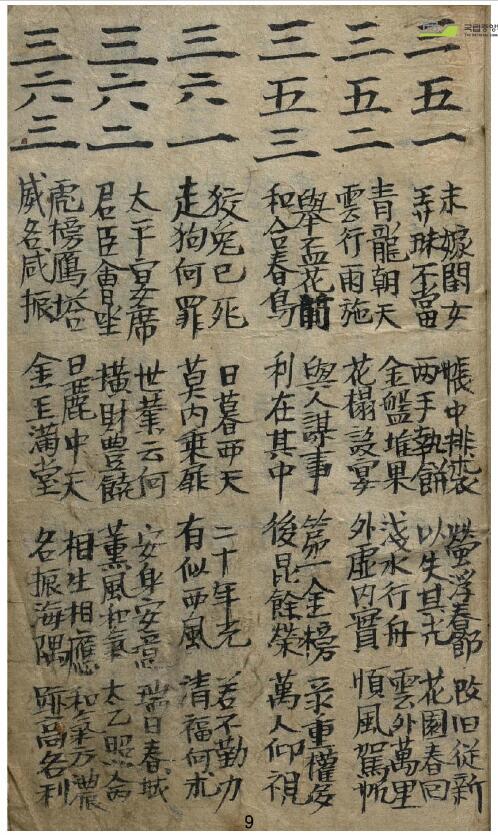 三五一
未嫁閨女 帳中排 螢浮春節 改旧従新
弄珠不當 兩手執餠 以失其光 花園春回
三五二
青龍朝天 金盤堆果 浅水行舟 雲外萬里
雲行雨施 花榻設宴 外虛內實 順風駕帆
三五三
擧盃花前 與人謀事 第一金榜 重權
和合春鳥 利在其中 後昆餘榮 萬人仰視
三六一
狡兔已死 日暮西天 二十年光 若不勤力
走狗何罪 莫內乘 有似西風 清福何求
三六二
太平宴席 世業云何 安身安富 瑞日春城
君臣會坐 橫財豊饒 薰風和氣 太乙照命
三六三
虎榜鴈塔 日麗中天 相生相應 和氣方濃
威名咸振 金玉滿堂 名振海隅 跡高名利
국립중앙
9